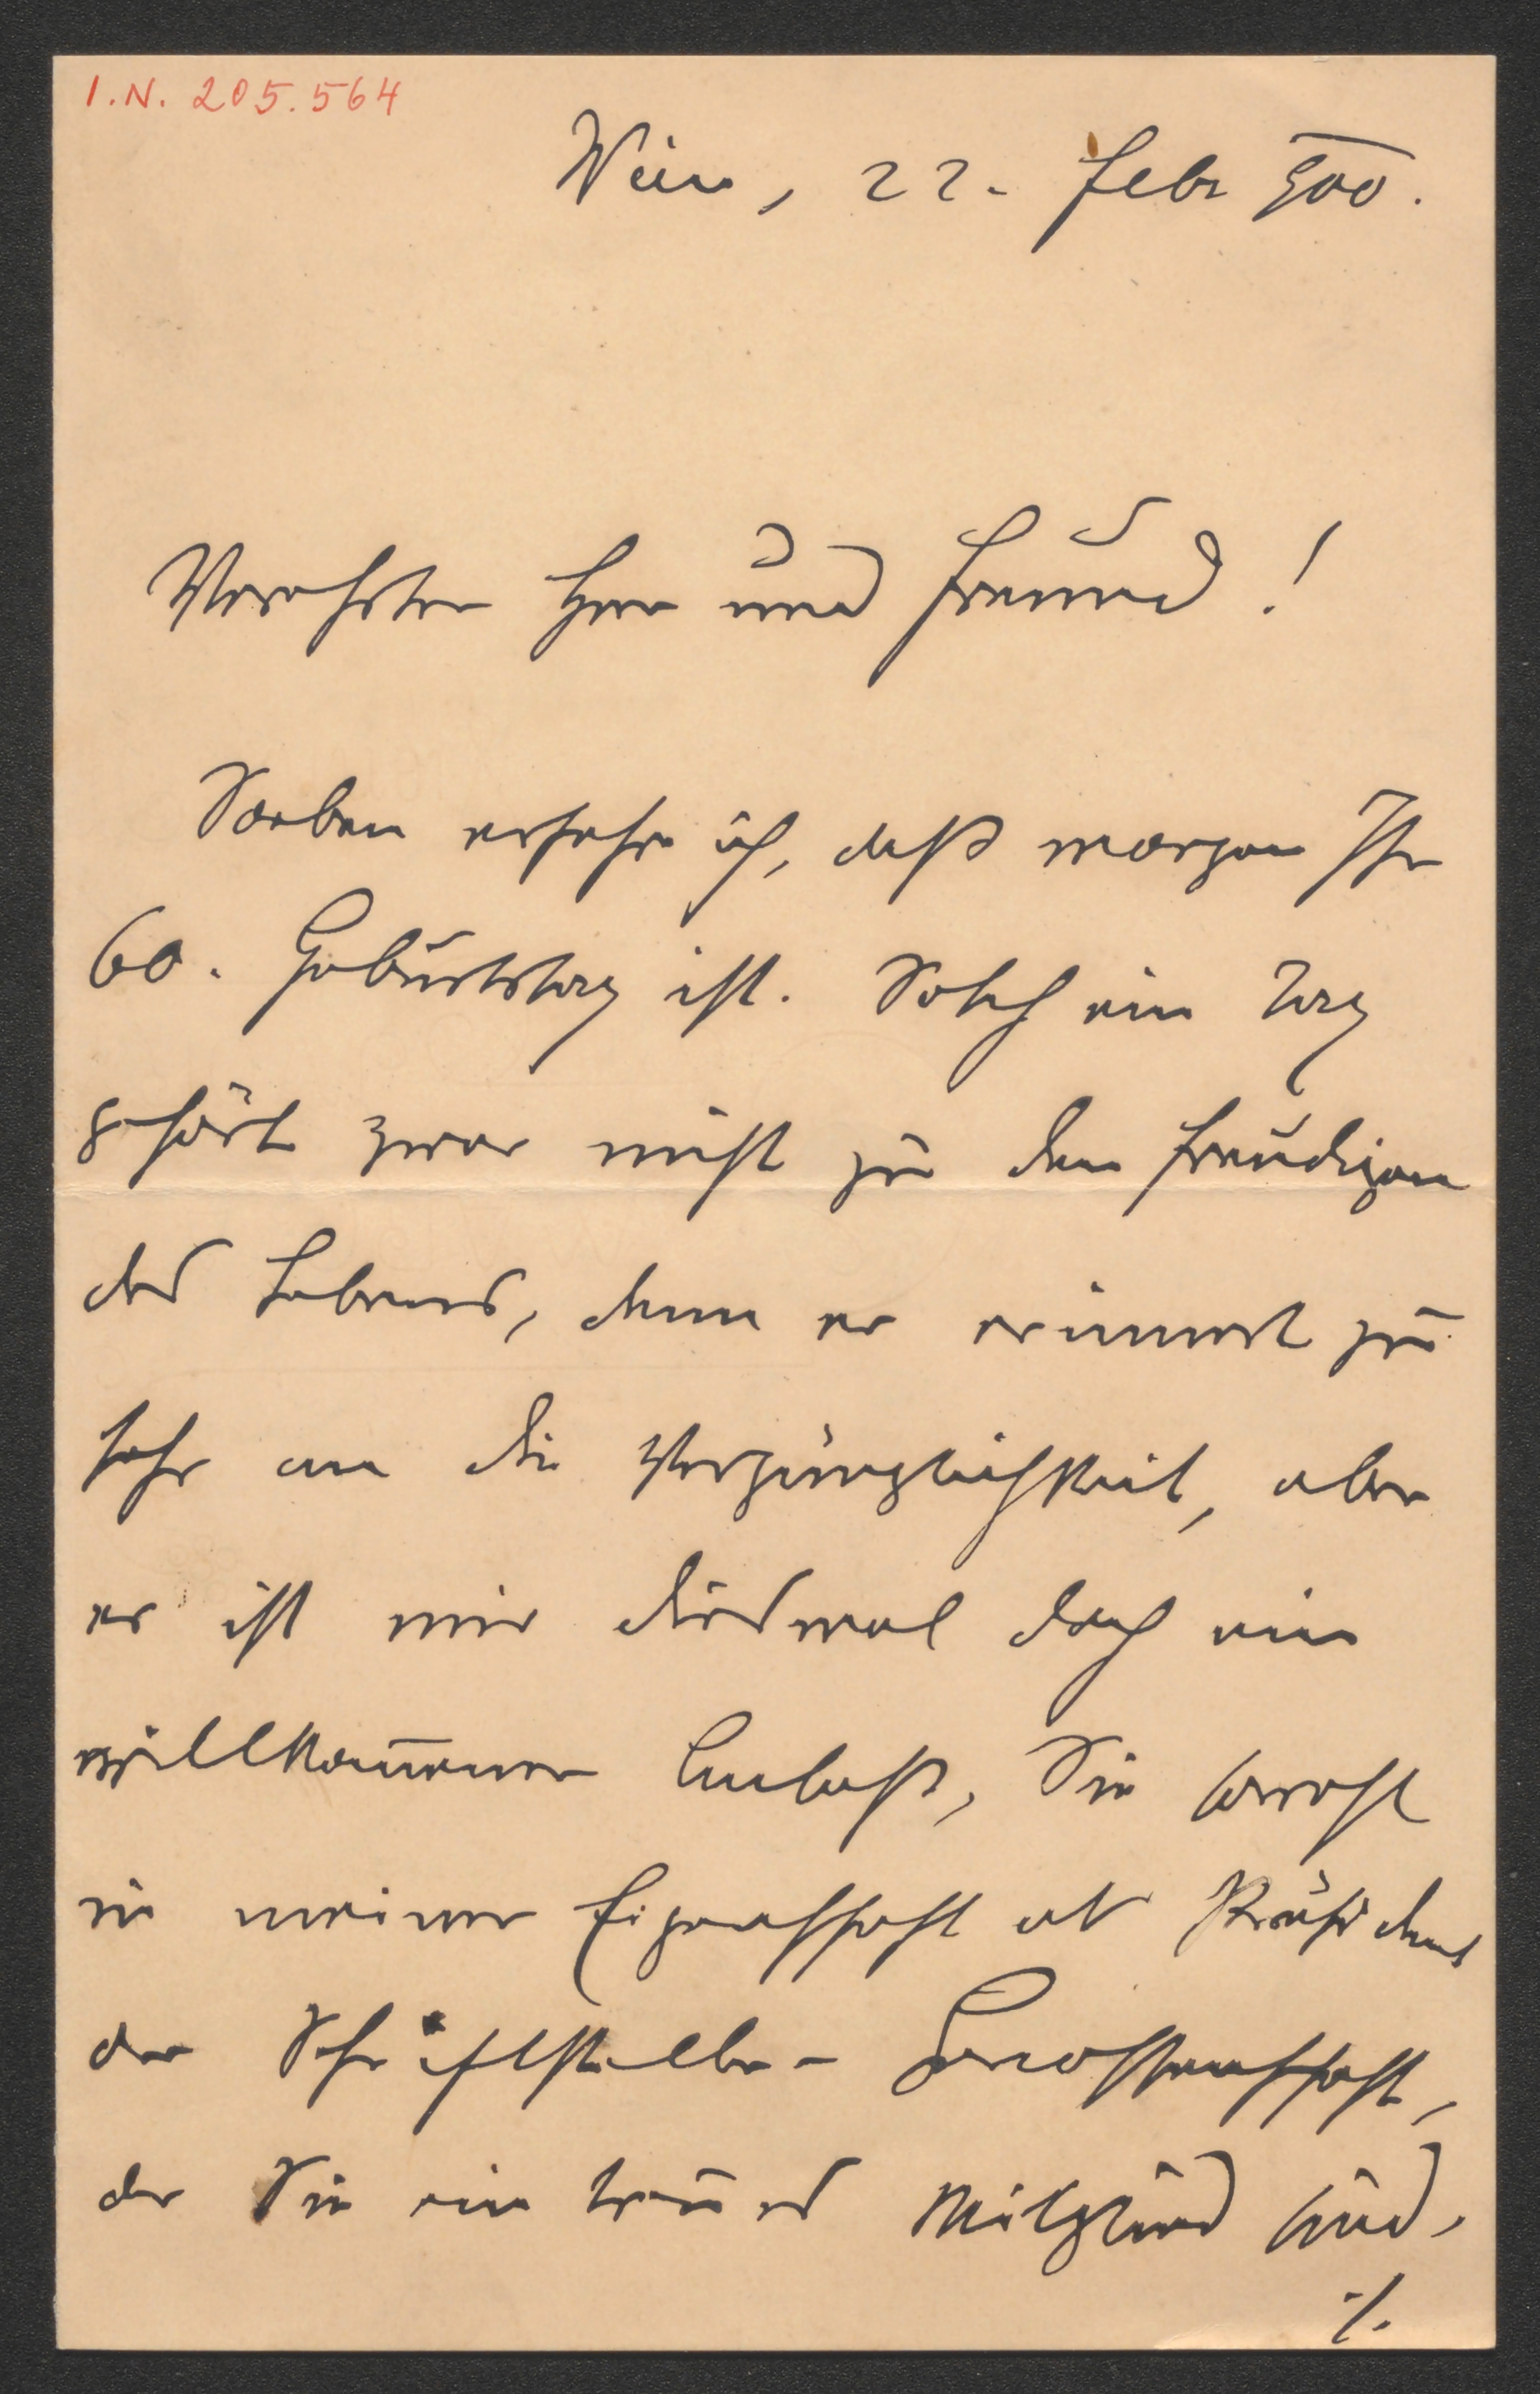 I.N. 205.564
Wien, 22. Febr 900.
Verehrter Herr und Freund!
Soeben erfahre ich, daß morgen Ihr
60. Geburtstag ist. Solch ein Tag
gehört zwar nicht zu den freudigen
des Lebens, denn er erinnert zu
sehr an die Vergänglichkeit, aber
er ist mir diesmal doch ein
willkom̅ener Anlaß, Sie sowohl
in meiner Eigenschaft als Präsident
der Schriftsteller-Genossenschaft,
der Sie ein treues Mitglied sind,
./.